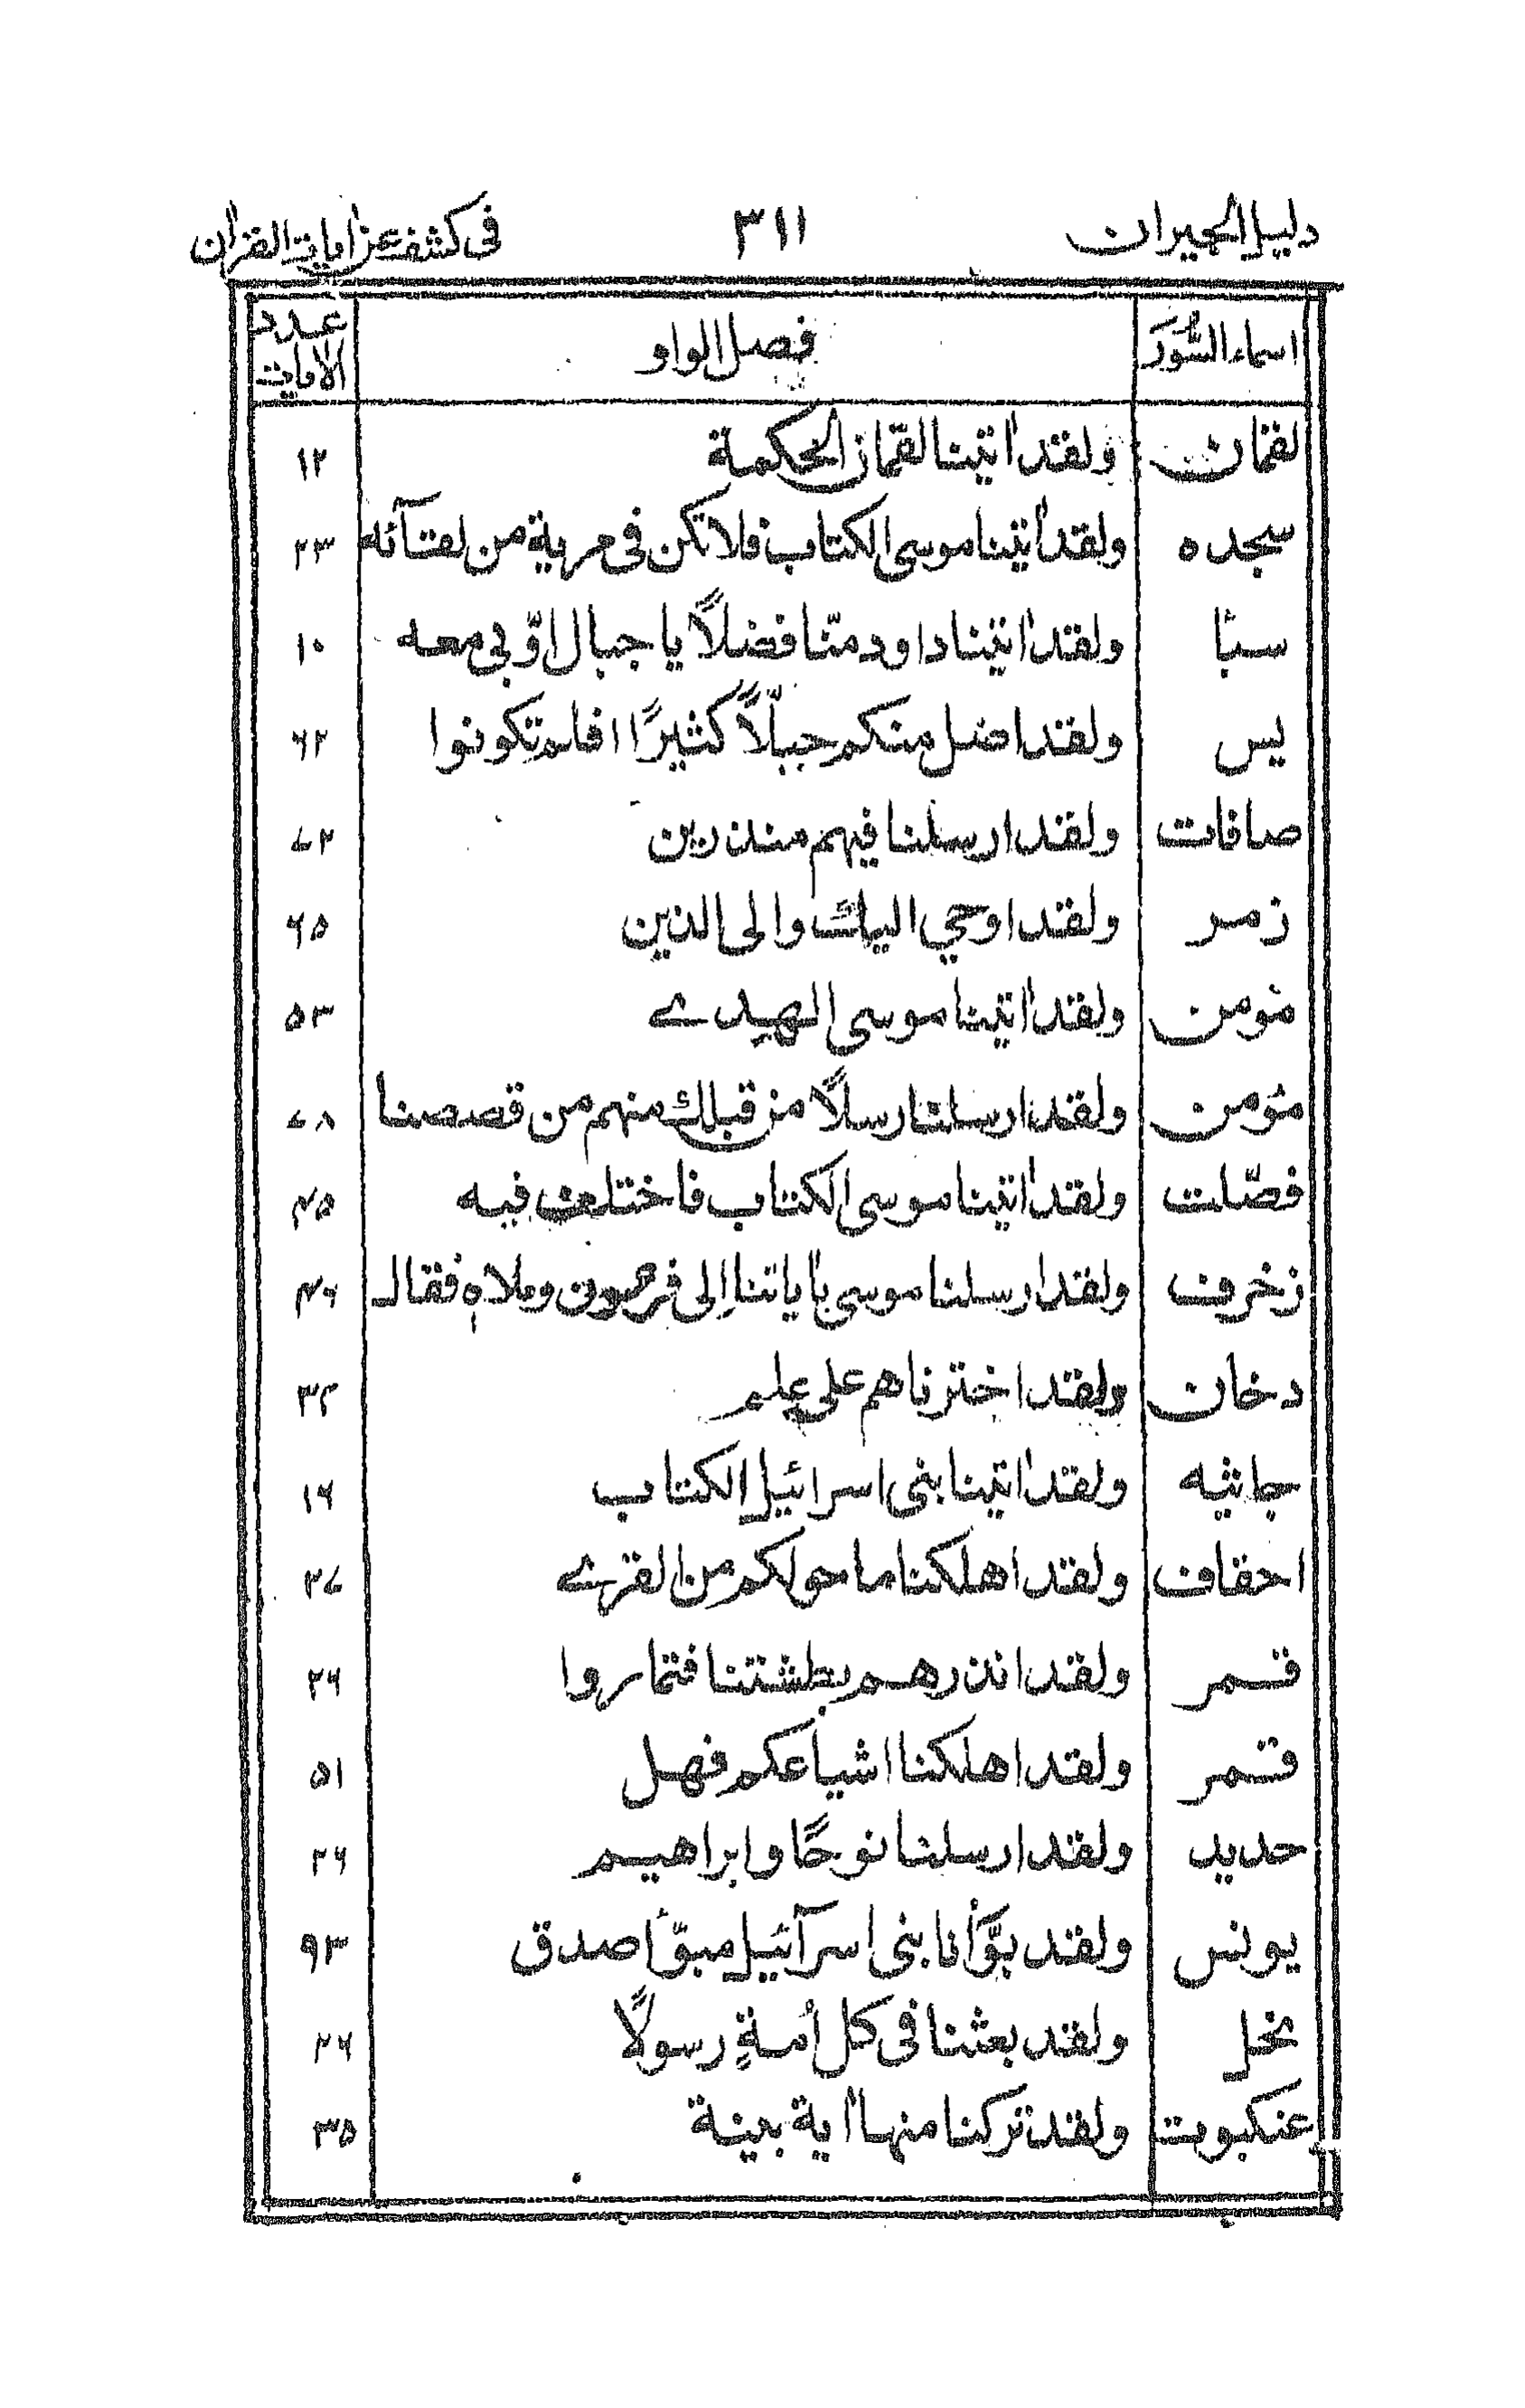 دليل الحيران ٣١١ فى كشف عن ايات القران
اسماء السُّوَر فصل الواو عدد الايات
لقمان ولقد اتينا لقمان الحكمة ١٢
سجده ولقد اتينا موسى الكتاب فلا تكن فى مرية من لقآئه ٢٣
سبأ ولقد اتينا داود منّا فضلاً يا جبال اوّبى معه ١٠
يس ولقد اضل منكم جبلّاً كثيرًا افلم تكونوا ٦٢
صافات ولقد ارسلنا فيهم منذرين ٧٢
زمر ولقد اوحي اليك والى الذين ٦٥
مؤمن ولقد اتينا موسى الهدے ٥٣
مؤمن ولقد ارسلنا رسلاً من قبلك منهم من قصصنا ٧٨
فصّلت ولقد اتينا موسى الكتاب فاختلف فيه ٤٥
زخرف ولقد ارسلنا موسى باياتنا إلى فرعون وملاه فقال ٤٦
دخان ولقد اخترناهم على علم ٣٢
جاثيه ولقد اتينا بنى اسرائيل الكتاب ١٦
احقاف ولقد اهلكنا ما حولكم من القرے ٢٧
قمر ولقد انذرهم بطشتنا فتماروا ٣٦
قمر ولقد اهلكنا اشياعكم فهل ٥١
حديد ولقد ارسلنا نوحًا وابراهيم ٢٦
يونس ولقد بوَّأنا بنى اسرآئيل مبوّأ صدق ٩٣
نحل ولقد بعثنا فى كل أمةٍ رسولًا ٣٦
عنكبوت ولقد تركنا منها اية بينة ٣٥